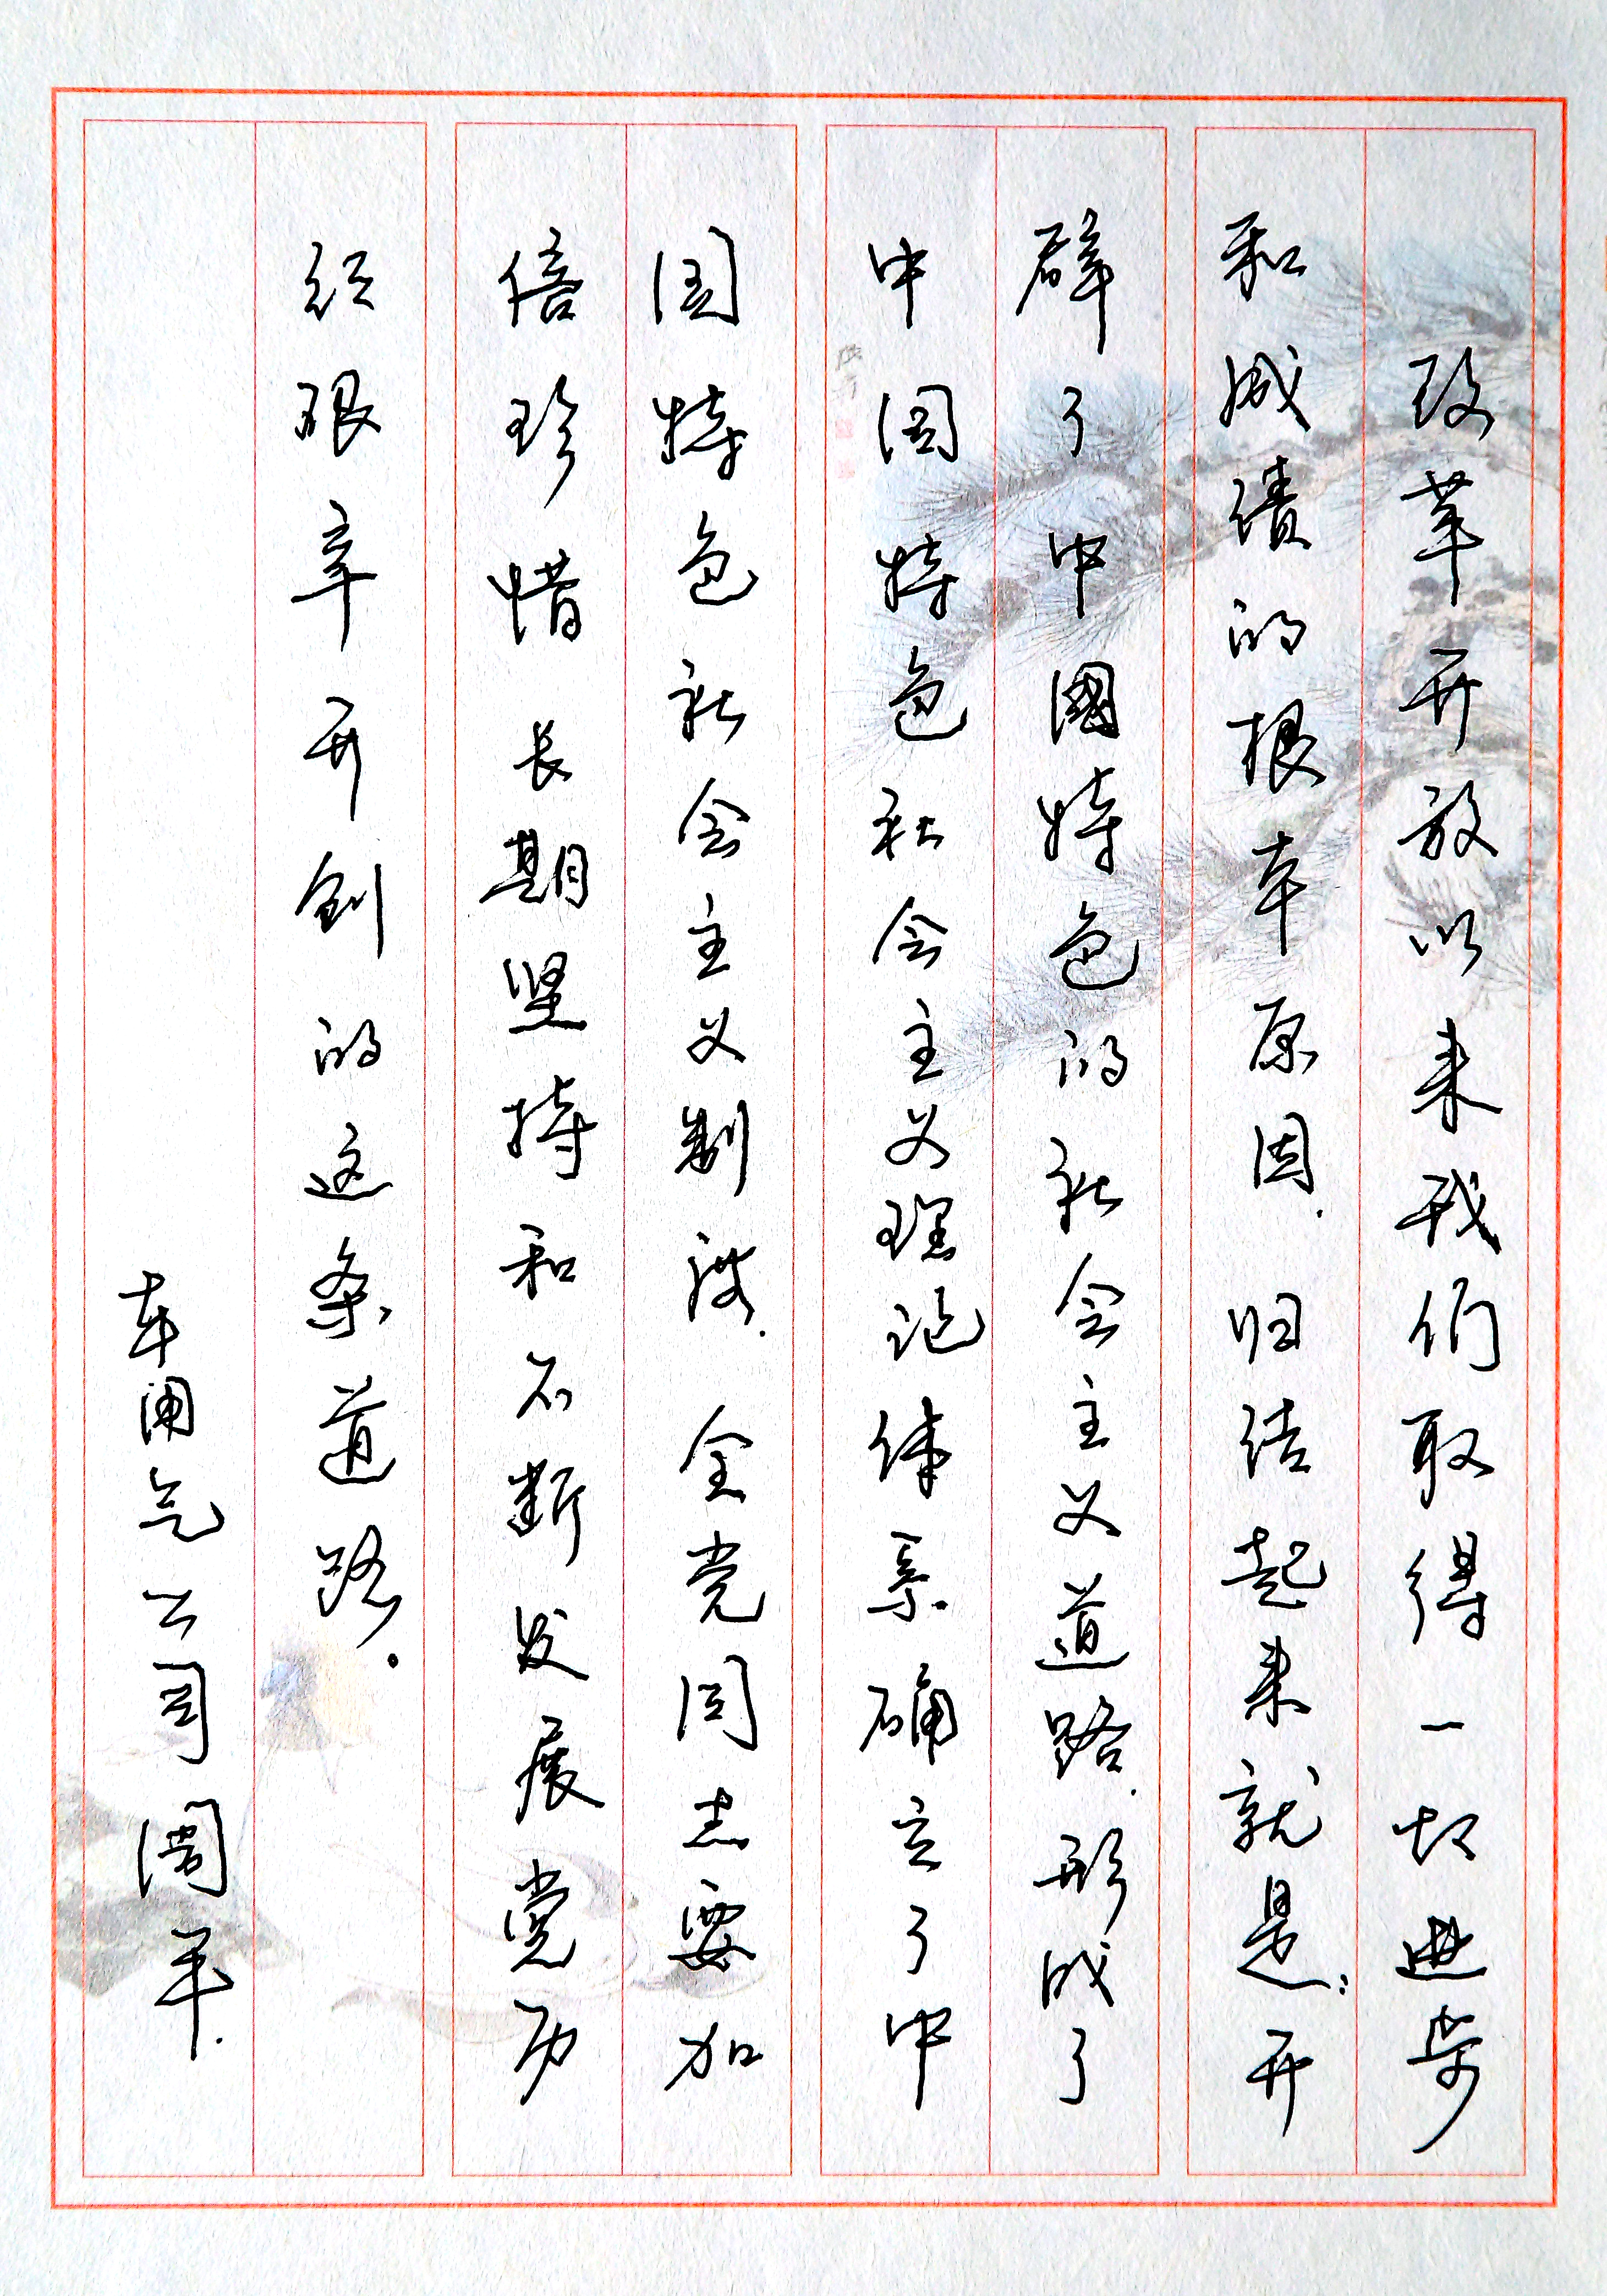 改革开放以来我们取得一切进步
和成绩的根本原因.归结起来就是:开
辟了中國特色的社会主义道路.形成了
中国特色社会主义理论体系确立了中
国特色社会主义制度.全党同志要加
倍珍惜长期坚持和不断发展党历
经艰辛开创的这条道路.
车用气公司 周平.